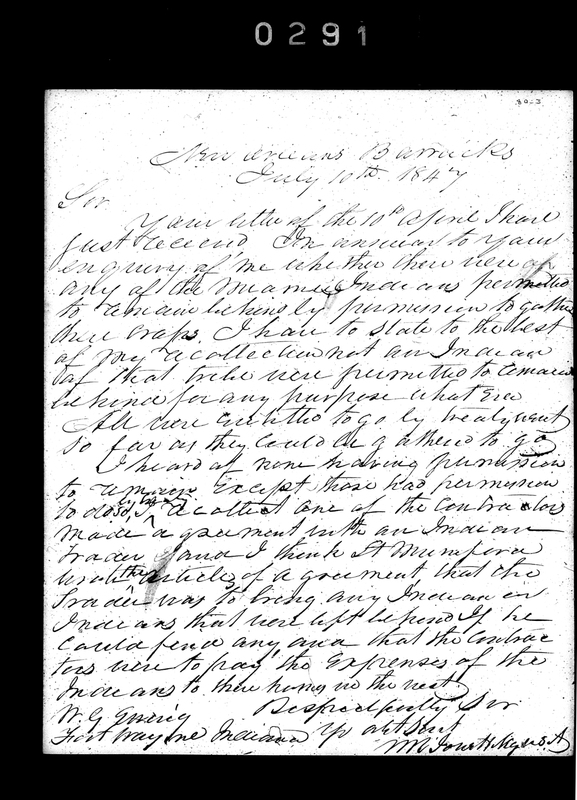 0291
80-3
New Orleans Barracks
July 10th 1847
Sir
Your letter of the 10th April I have
just received In answer to your
enquiry of me whether there were
any of the Miamie Indians permitted
to remain behind by permission to gather
there craps. I have to state to the best
of my recollection not an Indian
of that tribe were permitted to remain
behind for any purpose what Ever
All were entitled to go by treaty &
so far as they could be gathered to go
I heard of none having permission
to remain Except those had permission
to do so, by treaty I recollect one of the Contractors
made a agreement with an Indian
Trader and I think
the article of agreement that the
Trader was to bring any Indian or
Indians that were left behind If he
could find any and that the Contrac
tors were to pay the Expenses of the
Indians to there homes in the west
Respectfully Sir
W. G. Ewing Yr obt Sert
Fort Wayne Indiana